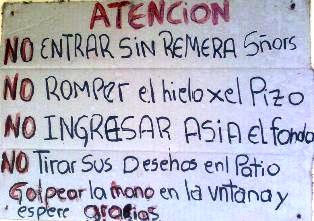 ATENCION
NO ENTRAR SiN REMERA Sñors
NO ROMPER el hielo x el Pizo
NO INGRESAR ASIA el fondo
NO Tirar Sus Desehos en l Patio
Golpear la mano en la vntana y
espere gracias